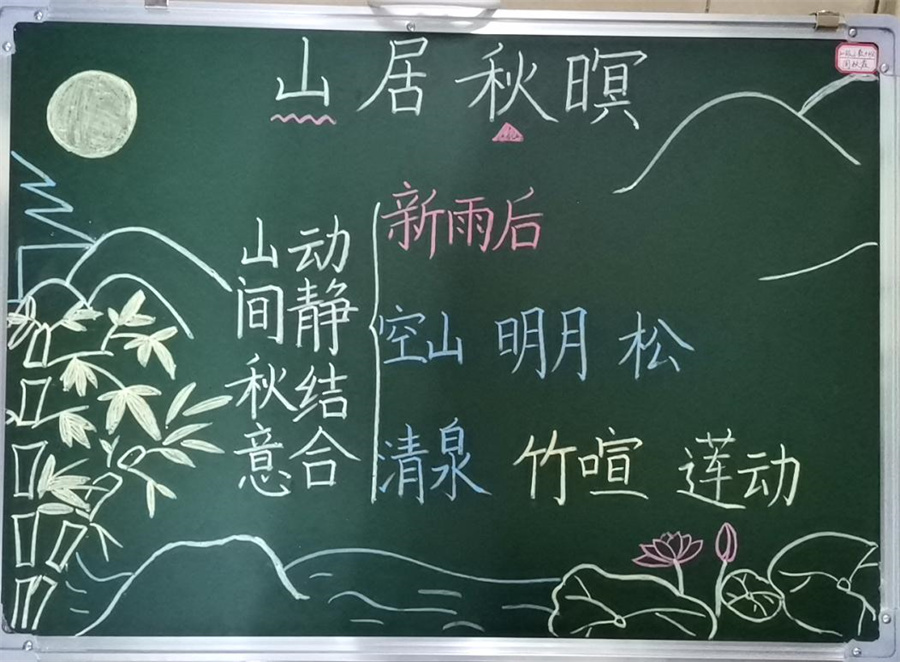 山居秋暝
山间秋意
动静结合
新雨后
空山 明月 松
清泉 竹喧 莲动